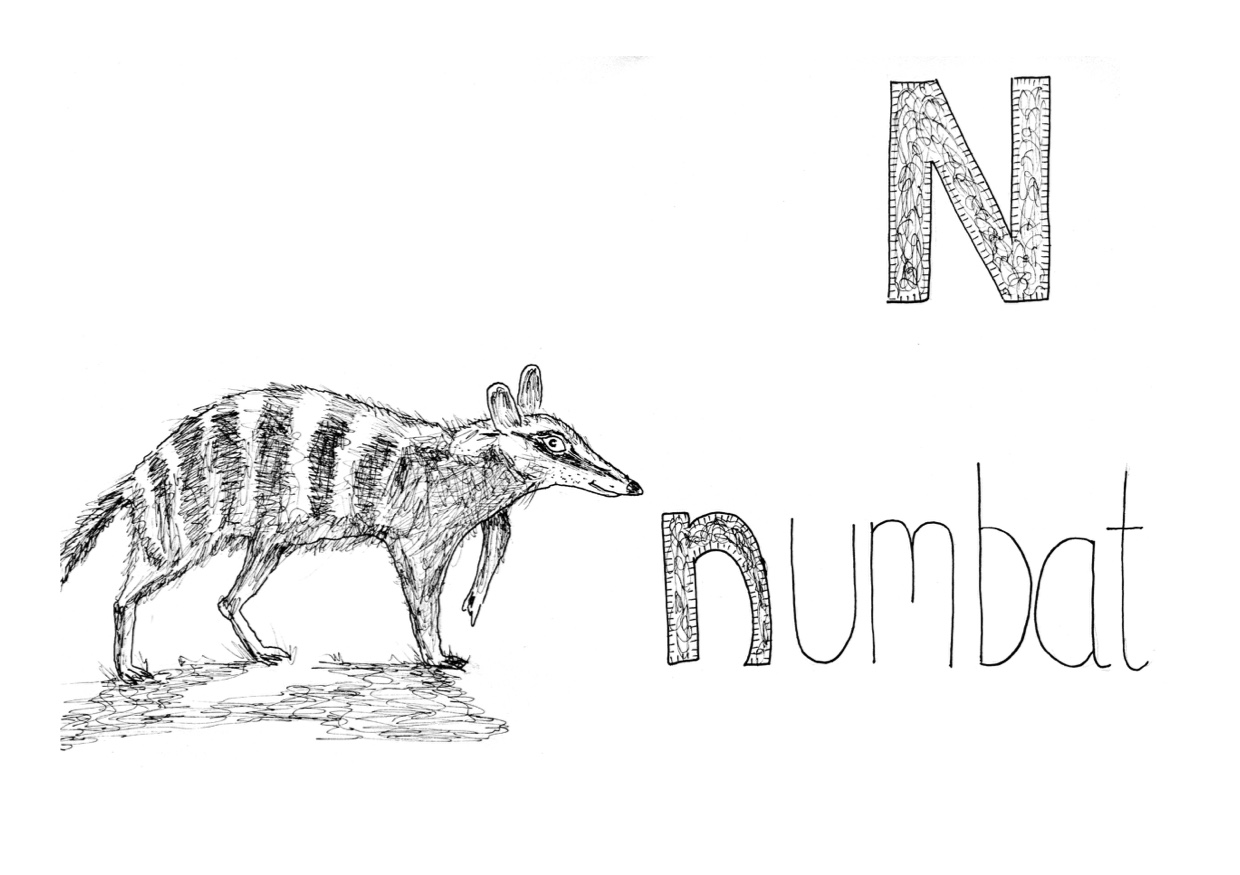 N
numbat